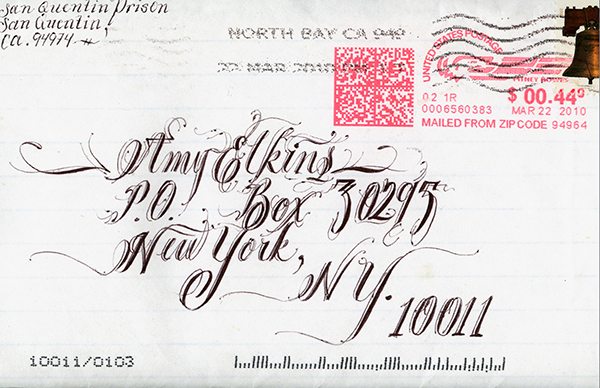 San Quentin Prison
San Quentin,
CA. 94974
NORTH BAY CA 949
22 MAR 2010 PM
UNITED STATES POSTAGE
PITNEY BOWES
02 1R
$ 00.44⁰
0006560383
MAR 22 2010
MAILED FROM ZIP CODE 94964
Amy Elkins
P.O. Box 30295
New York,
NY. 10011
10011/0103